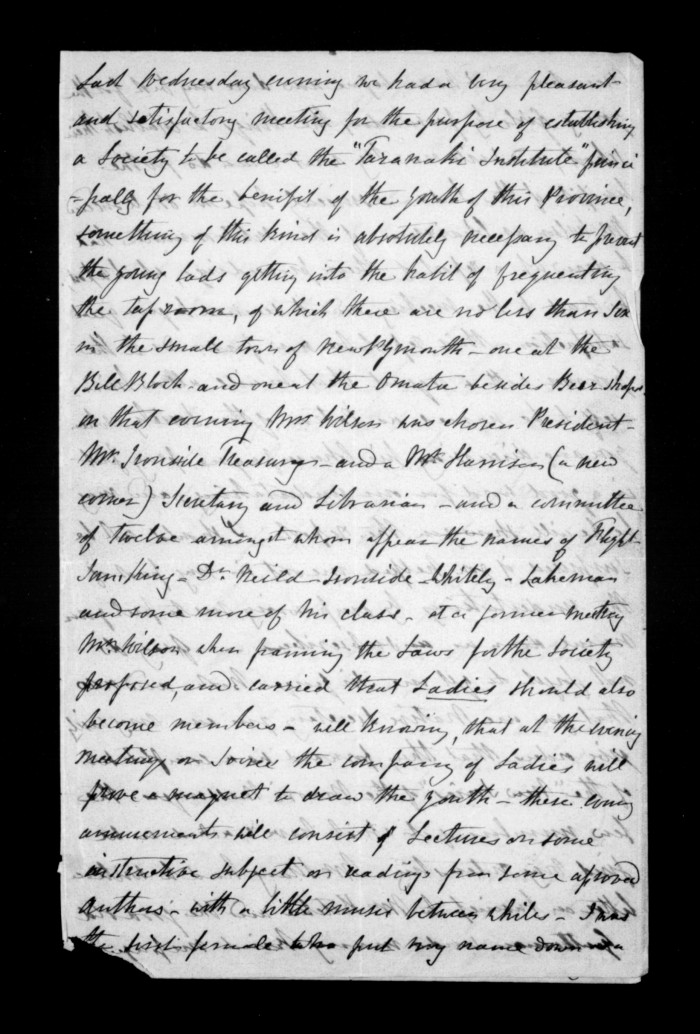 Last Wednesday evening we had a very pleasant
and satisfactory meeting for the purpose of establishing
a Society to be called the "Taranaki Institute" princi
-pally for the benefit of the youth of this Province,
something of this kind is absolutely necessary to prevent
the young lads getting into the habit of frequenting
the tap room, of which there are no less than six
in the small town of New Plymouth - one at the
Bell Block - and one at the Omata besides Beer shops.
on that evening Mr Wilson was chosen President -
Mr. Ironside Treasurer - and a Mr Harrison (a new
comer) Secretary and Librarian - and a committee
of twelve amongst whom appear the names of Flight
Sam King - Dr. Neild - Ironside - Whitely -
and some more of his class - at a former meeting
Mr Wilson when framing the Laws for the Society
proposed, and carried that Ladies should also
become members - well knowing, that at the evening
meetings or Soirees the company of Ladies will
prove a magnet to draw the youth - these evening
amusements will consist of Lectures on some
instructive subject or readings from some approved
authors - with a little music between whiles - I was
the first female who put my name down as a